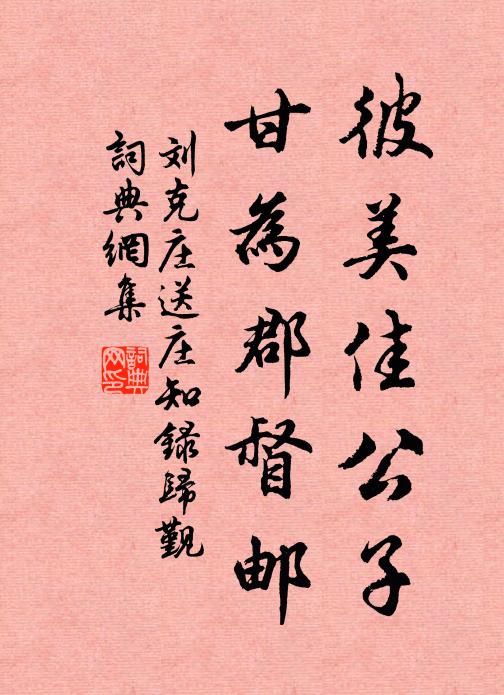 彼美佳公子
甘為郡督邮
刘克庄送庄知録歸覲
詞典網集
詞典
网印